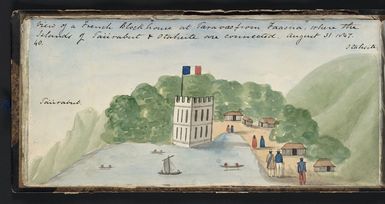 View of a French Blockhouse at Taravao from Faaona, where the
Islands of Tairabut & Otaheite are connected. August 31. 1847.
40.
Otaheite.
Tairabut.